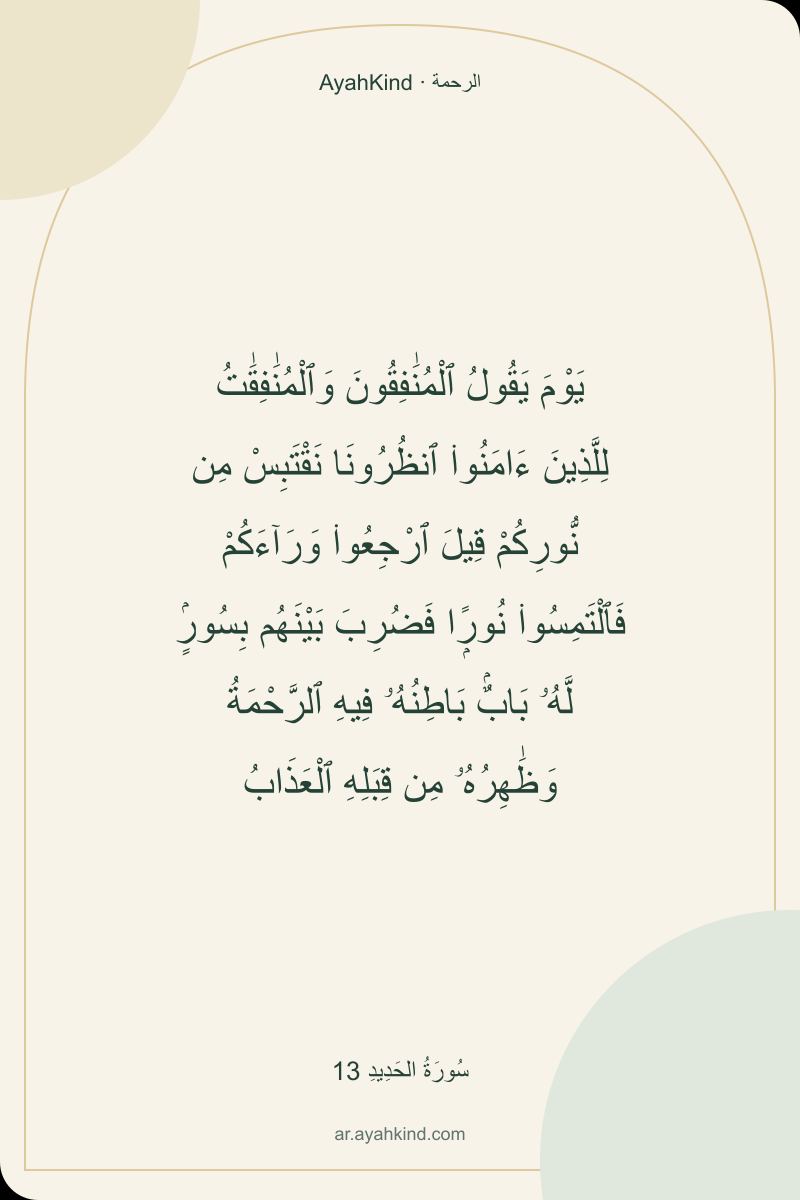 AyahKind · الرحمة
يَوْمَ يَقُولُ ٱلْمُنَٰفِقُونَ وَٱلْمُنَٰفِقَٰتُ
لِلَّذِينَ ءَامَنُوا۟ ٱنظُرُونَا نَقْتَبِسْ مِن
نُّورِكُمْ قِيلَ ٱرْجِعُوا۟ وَرَآءَكُمْ
فَٱلْتَمِسُوا۟ نُورًۭا فَضُرِبَ بَيْنَهُم بِسُورٍۢ
لَّهُۥ بَابٌۢ بَاطِنُهُۥ فِيهِ ٱلرَّحْمَةُ
وَظَٰهِرُهُۥ مِن قِبَلِهِ ٱلْعَذَابُ
سُورَةُ الحَدِيدِ 13
ar.ayahkind.com